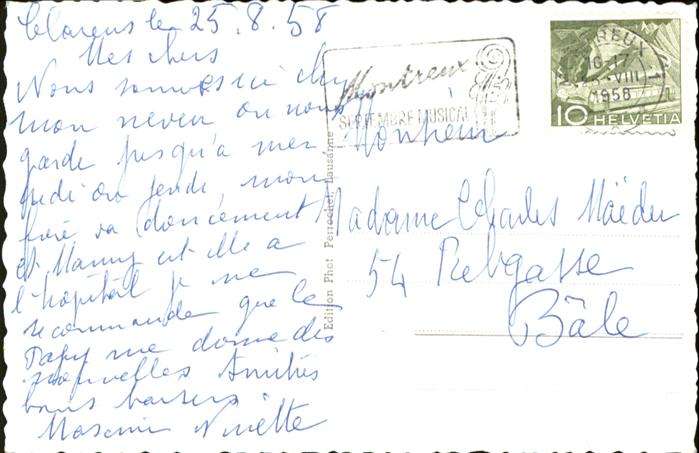 Clarens le 25.8.58
Mes chers
Nous sommes ici chez
mon neveu on nous
garde jusqu'a mer
credi ou jeudi, mon
frère va doucement
et Manny est elle a
l'hôpital je me
recommande que le
Papy me donne des
nouvelles Amitiés
bons baisers
Ninette
Edition Phot Perrochet, Lausanne
Montreux
SEPTEMBRE MUSICAL
MONTREUX 1
16-17
VIII
1958
10 HELVETIA
Monsieur
Madame Charles Mäeder
54 Rebgasse
Bâle